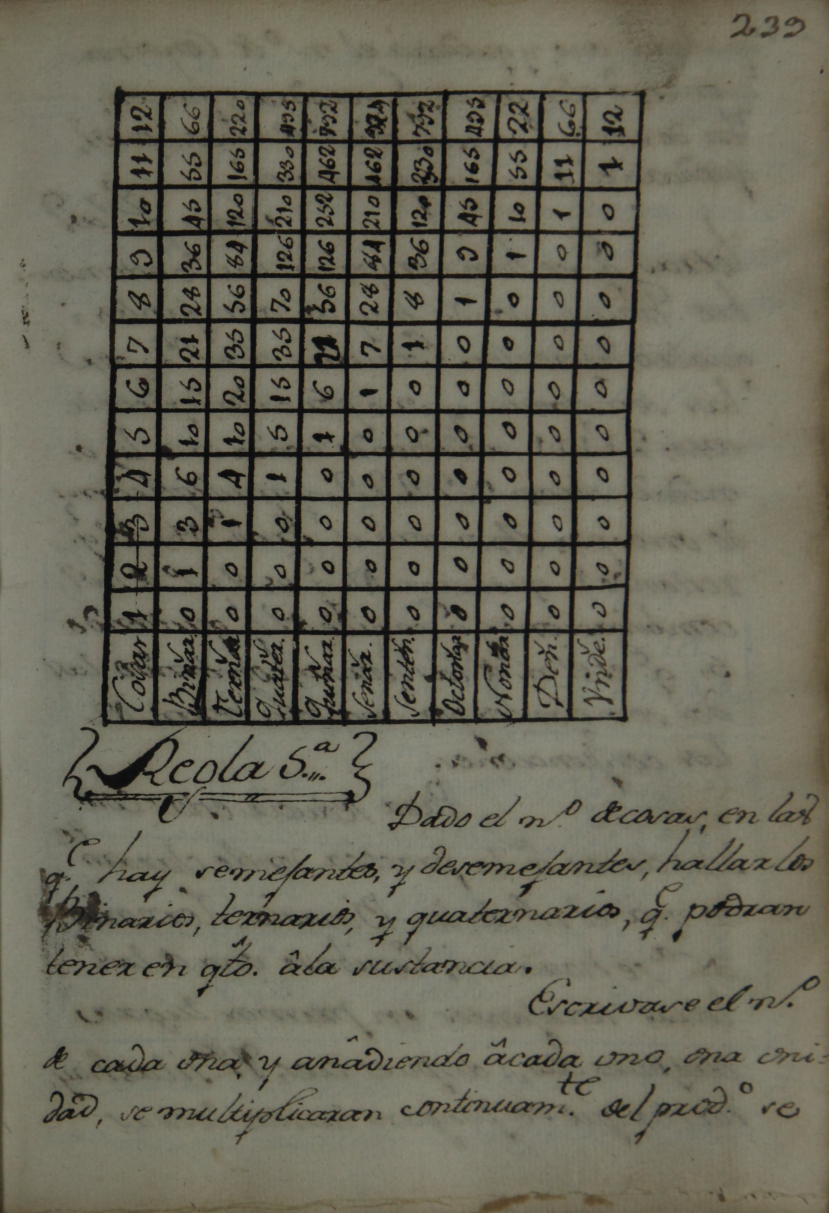 239
Cosas 1 2 3 4 5 6 7 8 9 10 11 12
Binar. 0 1 3 6 10 15 21 28 36 45 55 66
Terna 0 0 1 4 10 20 35 56 84 120 165 220
Quater. 0 0 0 1 5 15 35 70 126 210 330 495
Quinar 0 0 0 0 1 6 21 56 126 252 462 792
Senar. 0 0 0 0 0 1 7 28 84 210 462 924
Senten. 0 0 0 0 0 0 1 8 36 120 330 792
Octonar 0 0 0 0 0 0 0 1 9 45 165 495
Nonar 0 0 0 0 0 0 0 0 1 10 55 22
Den. 0 0 0 0 0 0 0 0 0 1 11 66
Vnde. 0 0 0 0 0 0 0 0 0 0 1 12
Regla 5.ª
Dado el n.º de cosas, en las
q.e hay semejantes, y desemejantes, hallar los
Binarios, ternarios, y quaternarios, q.e podran
tener en qto. âla sustancia.
Escrivase el n.º
de cada una, y anâdiendo âcada uno, una uni-
dad, se multiplicaran continuam.te del prod.º se